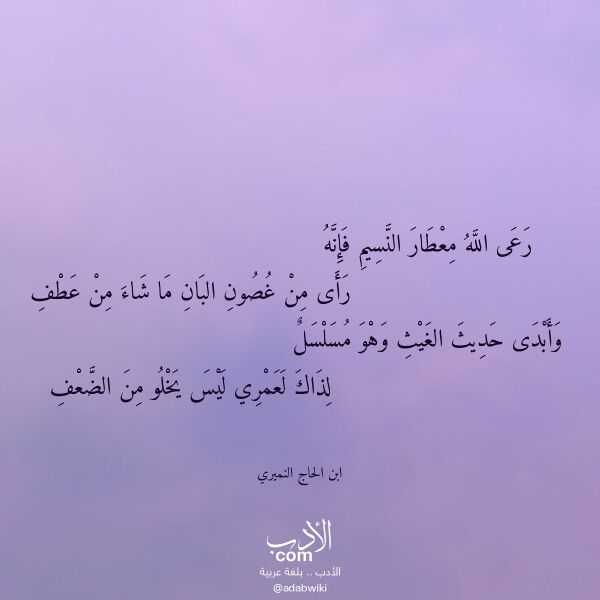 رَعَى اللَّهُ مِعْطَارَ النَّسِيمِ فَإِنَّهُ
رَأَى مِنْ غُصُونِ البَانِ مَا شَاءَ مِنْ عَطْفِ
وَأَبْدَى حَدِيثَ الغَيْثِ وَهْوَ مُسَلْسَلٌ
لِذَاكَ لَعَمْرِي لَيْسَ يَخْلُو مِنَ الضَّعْفِ
ابن الحاج النميري
الأدب
com
الأدب .. بلغة عربية
@adabwiki